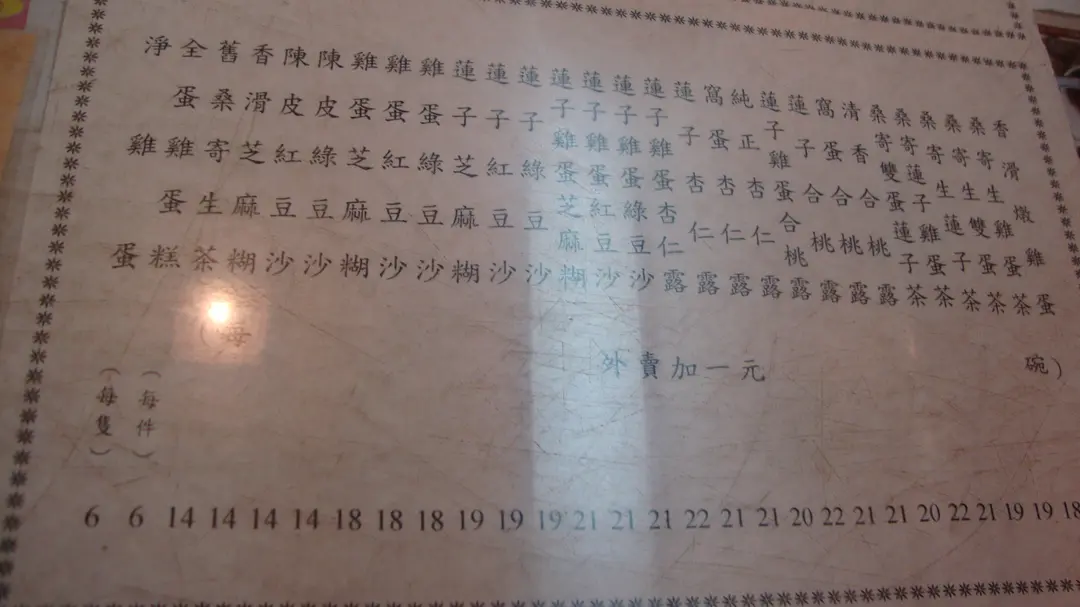 香滑燉雞蛋
桑寄生雞蛋茶
桑寄生雙蛋茶
桑寄生蓮子茶
桑寄蓮子雞蛋茶
桑寄雙蛋蓮子茶
清香合桃露
窩蛋合桃露
蓮子合桃露
蓮子雞蛋合桃露
純正杏仁露
窩蛋杏仁露
蓮子杏仁露
蓮子雞蛋杏仁露
蓮子雞蛋綠豆沙
蓮子雞蛋紅豆沙
蓮子雞蛋芝麻糊
蓮子綠豆沙
蓮子紅豆沙
蓮子芝麻糊
雞蛋綠豆沙
雞蛋紅豆沙
雞蛋芝麻糊
陳皮綠豆沙
陳皮紅豆沙
香滑芝麻糊
舊桑寄生茶
全蛋雞蛋糕
淨雞蛋
(每 碗)
外賣加一元
(每件)
(每隻)
6 6 14 14 14 14 18 18 18 19 19 19 21 21 21 22 21 21 20 22 21 21 20 22 21 19 19 18